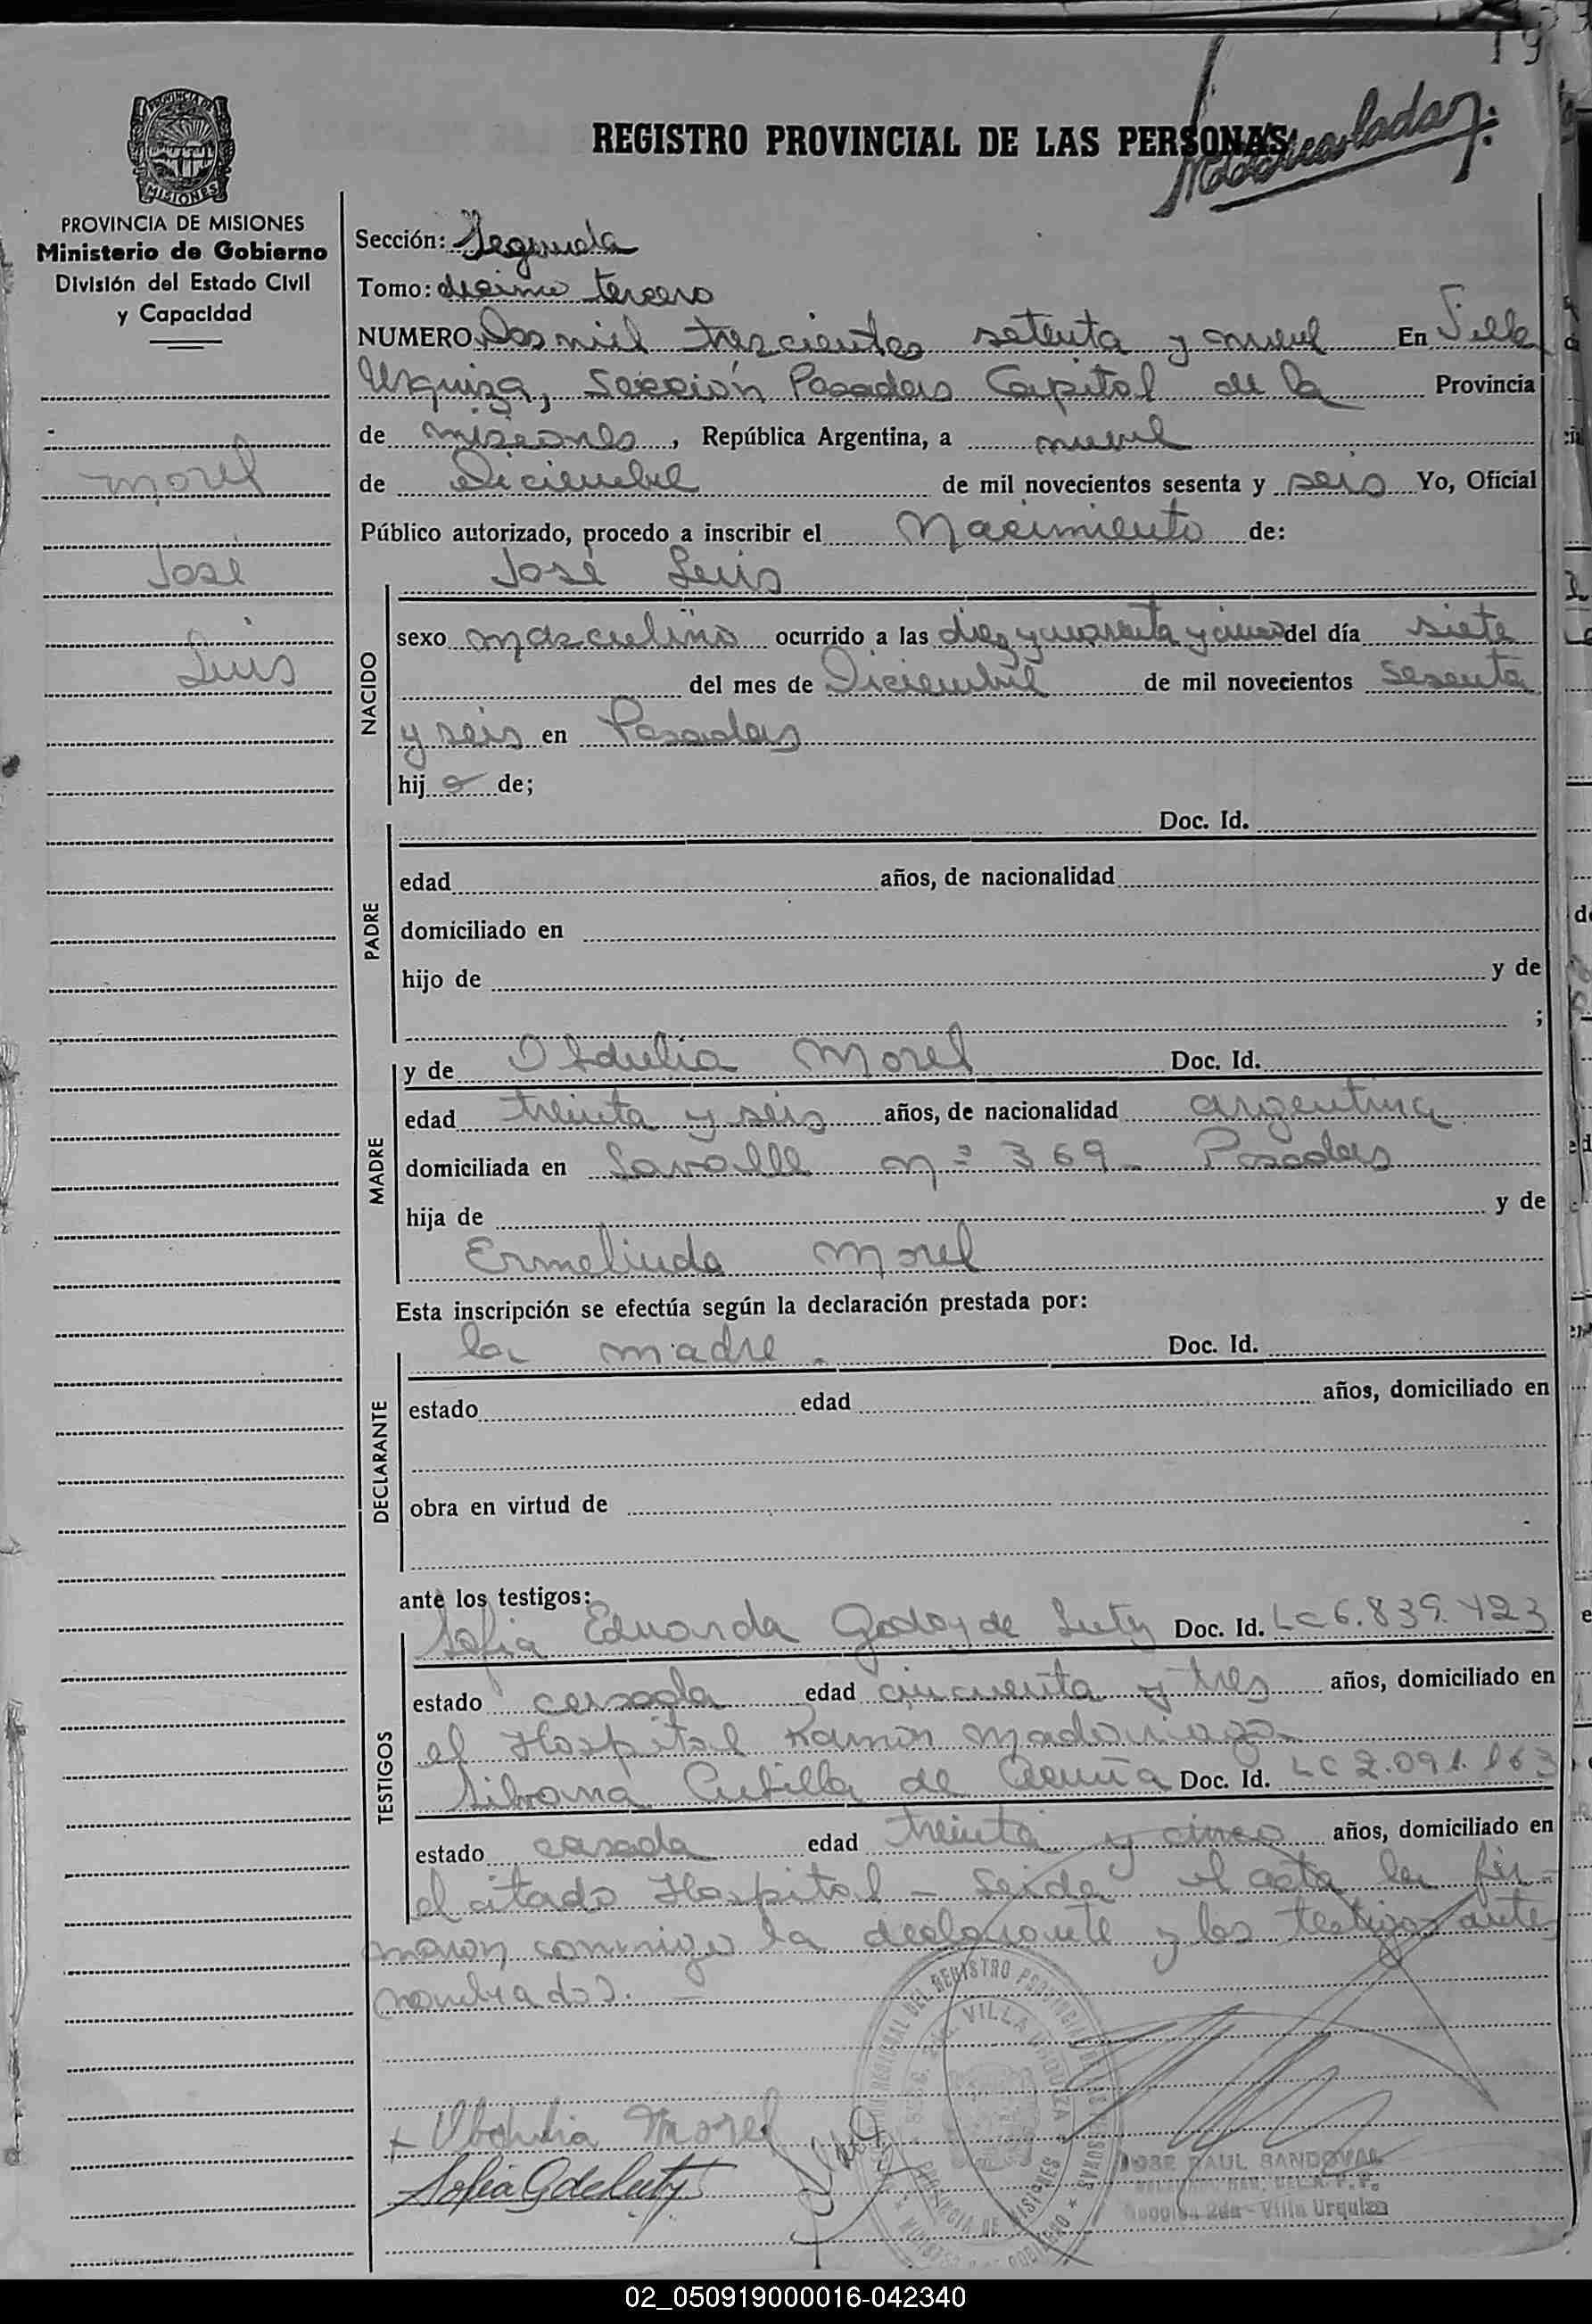 19
REGISTRO PROVINCIAL DE LAS PERSONAS
PROVINCIA DE MISIONES
Ministerio de Gobierno
División del Estado Civil
y Capacidad
Morel
José
Luis
Sección: Segunda
Tomo: decimo tercero
NUMERO Dos mil trescientos setenta y nueve En Villa
Urquiza, Sección Posadas Capital de la Provincia
de Misiones, República Argentina, a nueve
de Diciembre de mil novecientos sesenta y seis Yo, Oficial
Público autorizado, procedo a inscribir el Nacimiento de:
José Luis
NACIDO
sexo masculino ocurrido a las diez y cuarenta y cinco del día siete
del mes de Diciembre de mil novecientos sesenta
y seis en Posadas
hij o de;
PADRE
Doc. Id.
edad años, de nacionalidad
domiciliado en
hijo de y de
;
MADRE
y de Obdulia Morel Doc. Id.
edad treinta y seis años, de nacionalidad argentina
domiciliada en Lavalle nº 369 Posadas
hija de y de
Ermelinda Morel
Esta inscripción se efectúa según la declaración prestada por:
DECLARANTE
la madre. Doc. Id.
estado edad años, domiciliado en
obra en virtud de
ante los testigos:
TESTIGOS
Sofia Eduarda Godoy de Doc. Id. LC 6.839.423
estado casada edad cincuenta y tres años, domiciliado en
el Hospital Ramón Madariaga
Cubilla de Acuña Doc. Id. LC 2.091.163
estado casada edad treinta y cinco años, domiciliado en
el citado Hospital - Leida el acta la fir-
maron conmigo la declarante y los testigos ante
nombrados. -
Obdulia Morel
Sofia G de
JOSE RAUL SANDOVAL
Sección 2da - Villa Urquiza
02_050919000016-042340